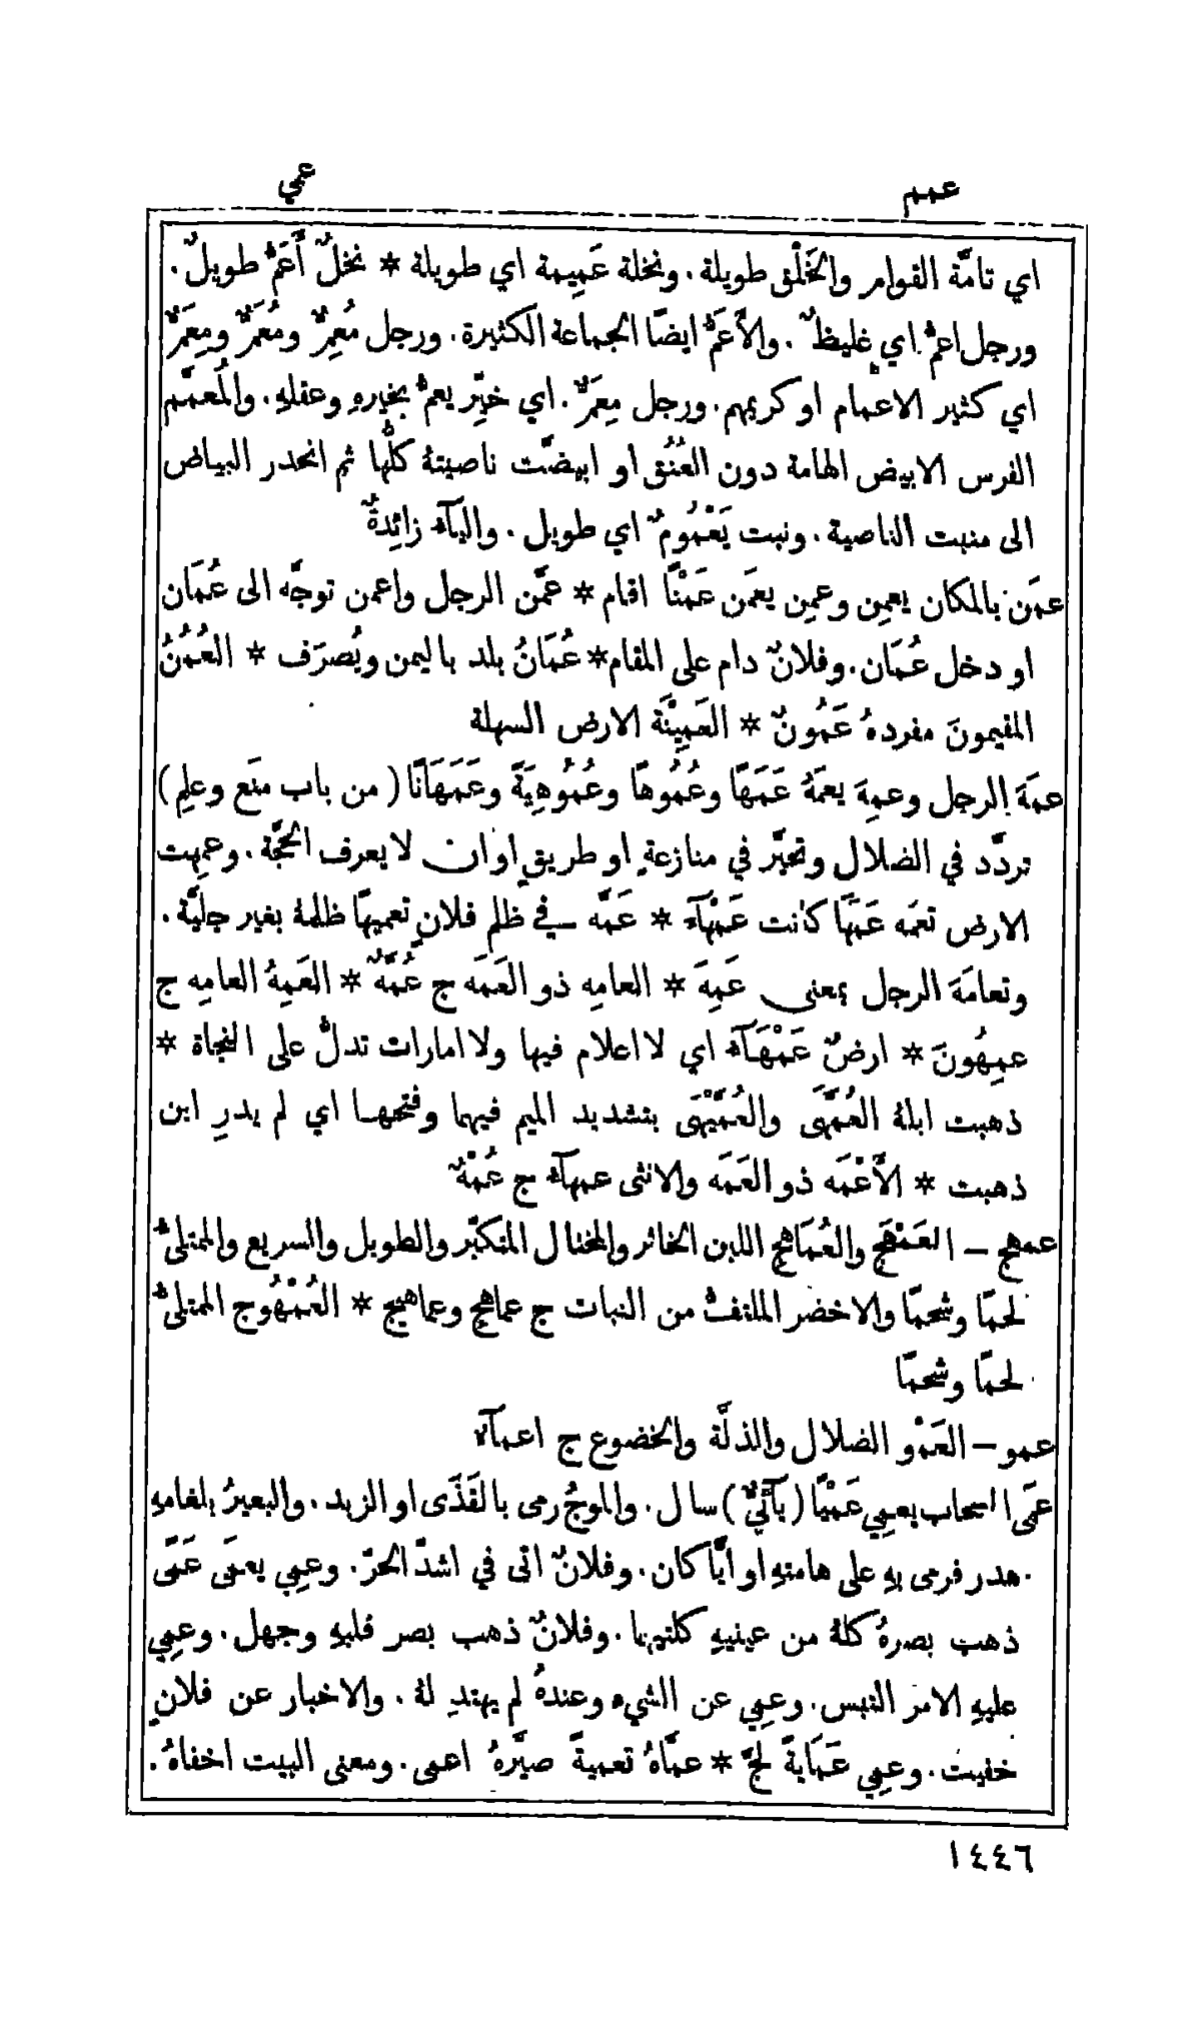 عمم
عمي
اي تامَّة القوام والخَلْق طويلة. ونخلة عَمِيمة اي طويلة * نخلٌ أَعَمّ طويلٌ.
ورجل اعمّ اي غليظٌ. والأَعَمّ ايضًا الجماعة الكثيرة. ورجل مُعِمٌّ ومُعَمٌّ ومِعَمٌّ
اي كثير الاعمام او كريمهم. ورجل مِعَمٌّ. اي خيِّر يعمّ بخيرهِ وعقلهِ. والمُعمَّم
الفرس الابيض الهامة دون العُنُق او ابيضَّت ناصيتهُ كلُّها ثم انحدر البياض
الى منبت الناصية. ونبت يَعْمُومٌ اي طويل. واليآء زائِدةٌ
عمَن بالمكان يعمِن وعمِن يعمَن عَمْنًا اقام * عمَّن الرجل واعمن توجَّه الى عُمَان
او دخل عُمَان. وفلانٌ دام على المقام * عُمَانُ بلد باليمن ويُصرَف * العُمُنُ
المقيمونَ مفردهُ عَمُونٌ * العَمِيْنَة الارض السهلة
عمَهَ الرجل وعمِهَ يعمَهُ عَمَهًا وعُمُوهًا وعُمُوهِيَةً وعَمَهَانًا (من باب منَع وعلِم)
تردَّد في الضلال وتحيَّر في منازعةٍ او طريقٍ او ان لا يعرف الحجَّة. وعمِهت
الارض تعمَه عَمَهًا كانت عَمْهآءَ * عَمَّه في ظلم فلانٍ تعميهًا ظلمهُ بغير جليَّة.
وتعامَهَ الرجل بمعنى عَمِهَ * العامِه ذو العَمَه ج عُمَّهٌ * العَمِهُ العامِه ج
عمِهُونَ * ارضٌ عَمْهَآء اي لا اعلام فيها ولا امارات تدلّ على النجاة *
ذهبت ابلهُ العُمَّهَى والعُمَّيْهَى بتشديد الميم فيهما وفتحهـا اي لم يدرِ اين
ذهبت * الأَعْمَه ذو العَمَه والانثى عمهآء ج عُمْهٌ
عمهج – العَمْهَج والعُمَاهِج اللبن الخاثر والمختال المتكبّر والطويل والسريع والممتلئ
لحمًا وشحمًا والاخضر الملتفّ من النبات ج عماهج وعماهيج * العُمْهُوج الممتلئ
لحمًا وشحمًا
عمو – العَمْو الضلال والذلَّة والخضوع ج اعمآء
عمَى السحاب يعمِي عَمْيًا (يآئيٌّ) سال. والموجُ رمى بالقَذَى او الزبد. والبعيرُ بلغامهِ
هدر فرمى بهِ على هامتهِ او ايًّا كان. وفلانٌ اتى في اشدّ الحرّ. وعمِي يعمَى عَمًى
ذهب بصرهُ كلهُ من عينيهِ كلتيهما. وفلانٌ ذهب بصر قلبهِ وجهل. وعمِي
عليهِ الامر التبس. وعمِي عن الشيء وعندهُ لم يهتدِ لهُ. والاخبار عن فلانٍ
خفيت. وعمِي عَمَايةً لجَّ * عمَّاهُ تعميةً صيَّرهُ اعمى. ومعنى البيت اخفاهُ.
١٤٤٦